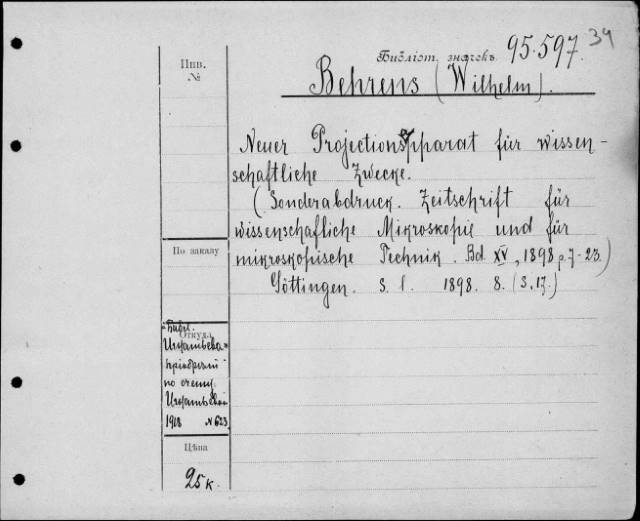 34
Библіот. значекъ 95.597
Behrens (Wilhelm).
Инв.
№
Neuer Projectionsapparat für wissen-
schaftliche Zwecke.
(Sonderabdruck. Zeitschrift für
wissenschafliche Mikroskopie und für
mikroskopische Technik. Bd XV, 1898 p. 7-23.)
Göttingen. s. l. 1898. 8. (S. 17.)
По заказу
Откуда
Библ.
по счету
1918 N 623
Цѣна
25 к.